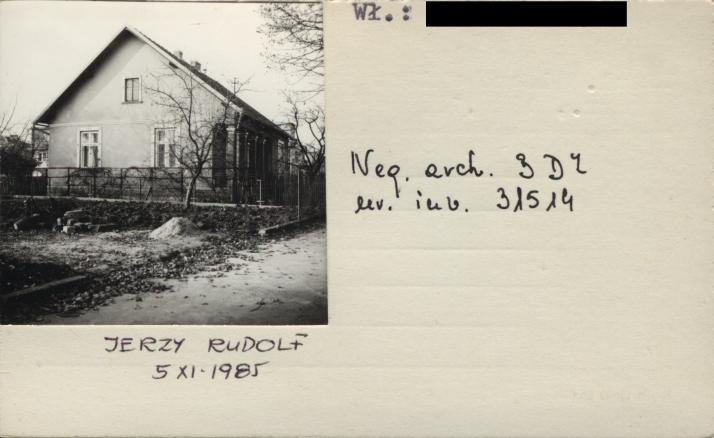 WŁ.:
Neg. arch. 3 DZ
nr. inv. 31514
JERZY RUDOLF
5 XI. 1985